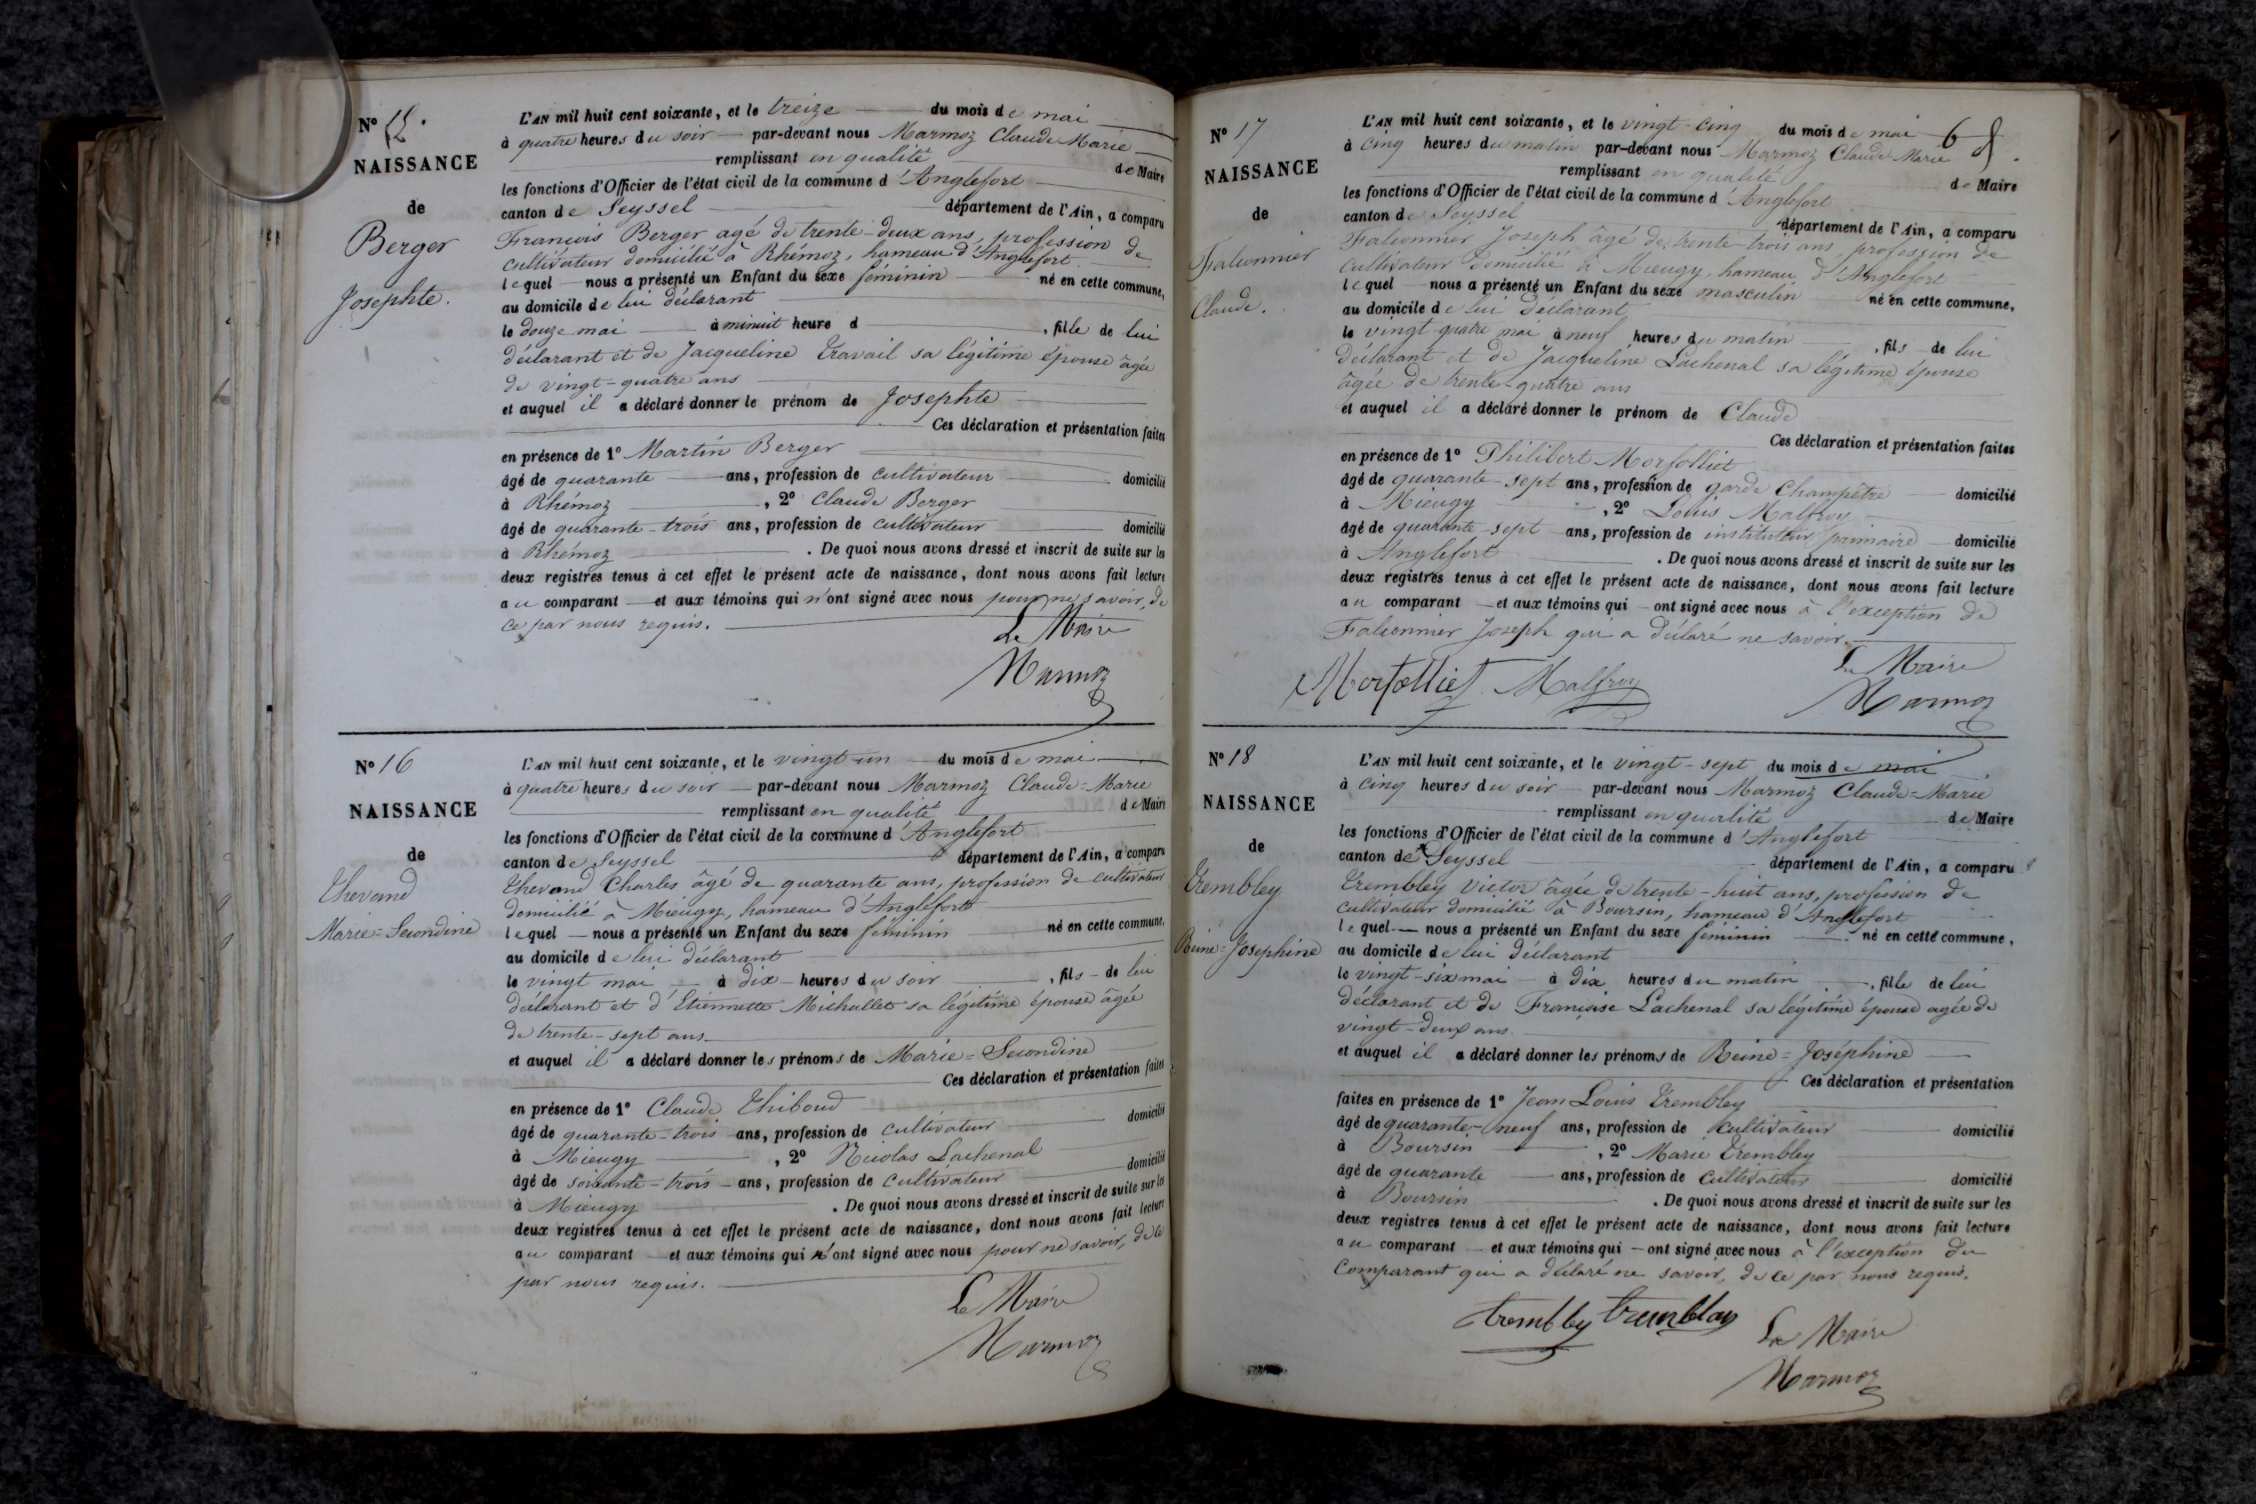 N° 15.
NAISSANCE
de
Berger
Josephte.
L'AN mil huit cent soixante, et le treize du mois de mai
à quatre heures du soir par-devant nous Marmoz Claude Marie
remplissant en qualité de Maire
les fonctions d'Officier de l'état civil de la commune d'Anglefort
canton de Seyssel département de l'Ain, a comparu
François Berger agé de trente-deux ans, profession de
cultivateur domicilié à Rhémoz, hameau d'Anglefort
lequel nous a présenté un Enfant du sexe féminin né en cette commune,
au domicile de lui déclarant
le douze mai à minuit heure d , fille de lui
déclarant et de Jacqueline Travail sa légitime épouse âgée
de vingt-quatre ans
et auquel il a déclaré donner le prénom de Josephte
Ces déclaration et présentation faites
en présence de 1° Martin Berger
âgé de quarante ans, profession de cultivateur domicilié
à Rhémoz , 2° Claude Berger
âgé de quarante-trois ans, profession de cultivateur domicilié
à Rhémoz . De quoi nous avons dressé et inscrit de suite sur les
deux registres tenus à cet effet le présent acte de naissance, dont nous avons fait lecture
au comparant et aux témoins qui n'ont signé avec nous pour ne savoir, de
ce par nous requis.
Le Maire
Marmoz
N° 16
NAISSANCE
de
Thevand
Marie=Secondine
L'AN mil huit cent soixante, et le vingt-un du mois de mai
à quatre heures du soir par-devant nous Marmoz Claude-Marie
remplissant en qualité de Maire
les fonctions d'Officier de l'état civil de la commune d'Anglefort
canton de Seyssel département de l'Ain, a comparu
Thevand Charles âgé de quarante ans, profession de cultivateur
domicilié à Mieugy, hameau d'Anglefort
lequel nous a présenté un Enfant du sexe féminin né en cette commune,
au domicile de lui déclarant
le vingt mai à dix heures du soir , fils de lui
déclarant et d'Etiennette Michallet sa légitime épouse âgée
de trente-sept ans
et auquel il a déclaré donner les prénoms de Marie=Secondine
Ces déclaration et présentation faites
en présence de 1° Claude Thiboud
âgé de quarante-trois ans, profession de cultivateur domicilié
à Mieugy , 2° Nicolas Lachenal
âgé de soixante-trois ans, profession de cultivateur domicilié
à Mieugy . De quoi nous avons dressé et inscrit de suite sur les
deux registres tenus à cet effet le présent acte de naissance, dont nous avons fait lecture
au comparant et aux témoins qui n'ont signé avec nous pour ne savoir, de ce
par nous requis.
Le Maire
Marmoz
6
N° 17
NAISSANCE
de
Falconnier
Claude.
L'AN mil huit cent soixante, et le vingt-cinq du mois de mai
à cinq heures du matin par-devant nous Marmoz Claude Marie
remplissant en qualité de Maire
les fonctions d'Officier de l'état civil de la commune d'Anglefort
canton de Seyssel département de l'Ain, a comparu
Falconnier Joseph âgé de trente-trois ans, profession de
cultivateur domicilié à Mieugy, hameau d'Anglefort
lequel nous a présenté un Enfant du sexe masculin né en cette commune,
au domicile de lui déclarant
le vingt quatre mai à neuf heures du matin , fils de lui
déclarant et de Jacqueline Lachenal sa légitime épouse
âgée de trente-quatre ans
et auquel il a déclaré donner le prénom de Claude
Ces déclaration et présentation faites
en présence de 1° Philibert Morfolliet
âgé de quarante-sept ans, profession de garde Champêtre domicilié
à Mieugy , 2° Louis Malfroy
âgé de quarante-sept ans, profession de instituteur primaire domicilié
à Anglefort . De quoi nous avons dressé et inscrit de suite sur les
deux registres tenus à cet effet le présent acte de naissance, dont nous avons fait lecture
au comparant et aux témoins qui ont signé avec nous à l'exception de
Falconnier Joseph qui a déclaré ne savoir
Morfolliet Malfroy
Le Maire
Marmoz
N° 18
NAISSANCE
de
Trembley
Reine=Josephine
L'AN mil huit cent soixante, et le vingt-sept du mois de mai
à cinq heures du soir par-devant nous Marmoz Claude=Marie
remplissant en qualité de Maire
les fonctions d'Officier de l'état civil de la commune d'Anglefort
canton de Seyssel département de l'Ain, a comparu
Trembley Victor âgée de trente-huit ans, profession de
cultivateur domicilié à Boursin, hameau d'Anglefort
lequel nous a présenté un Enfant du sexe féminin né en cette commune,
au domicile de lui déclarant
le vingt-six mai à dix heures du matin , fille de lui
déclarant et de Françoise Lachenal sa légitime épouse agée de
vingt-deux ans
et auquel il a déclaré donner les prénoms de Reine=Joséphine
Ces déclaration et présentation
faites en présence de 1° Jean Louis Trembley
âgé de quarante-neuf ans, profession de cultivateur domicilié
à Boursin , 2° Marie Trembley
âgé de quarante ans, profession de cultivateur domicilié
à Boursin . De quoi nous avons dressé et inscrit de suite sur les
deux registres tenus à cet effet le présent acte de naissance, dont nous avons fait lecture
au comparant et aux témoins qui ont signé avec nous à l'exception du
Comparant qui a déclaré ne savoir, de ce par nous requis.
trembley tremblay
Le Maire
Marmoz